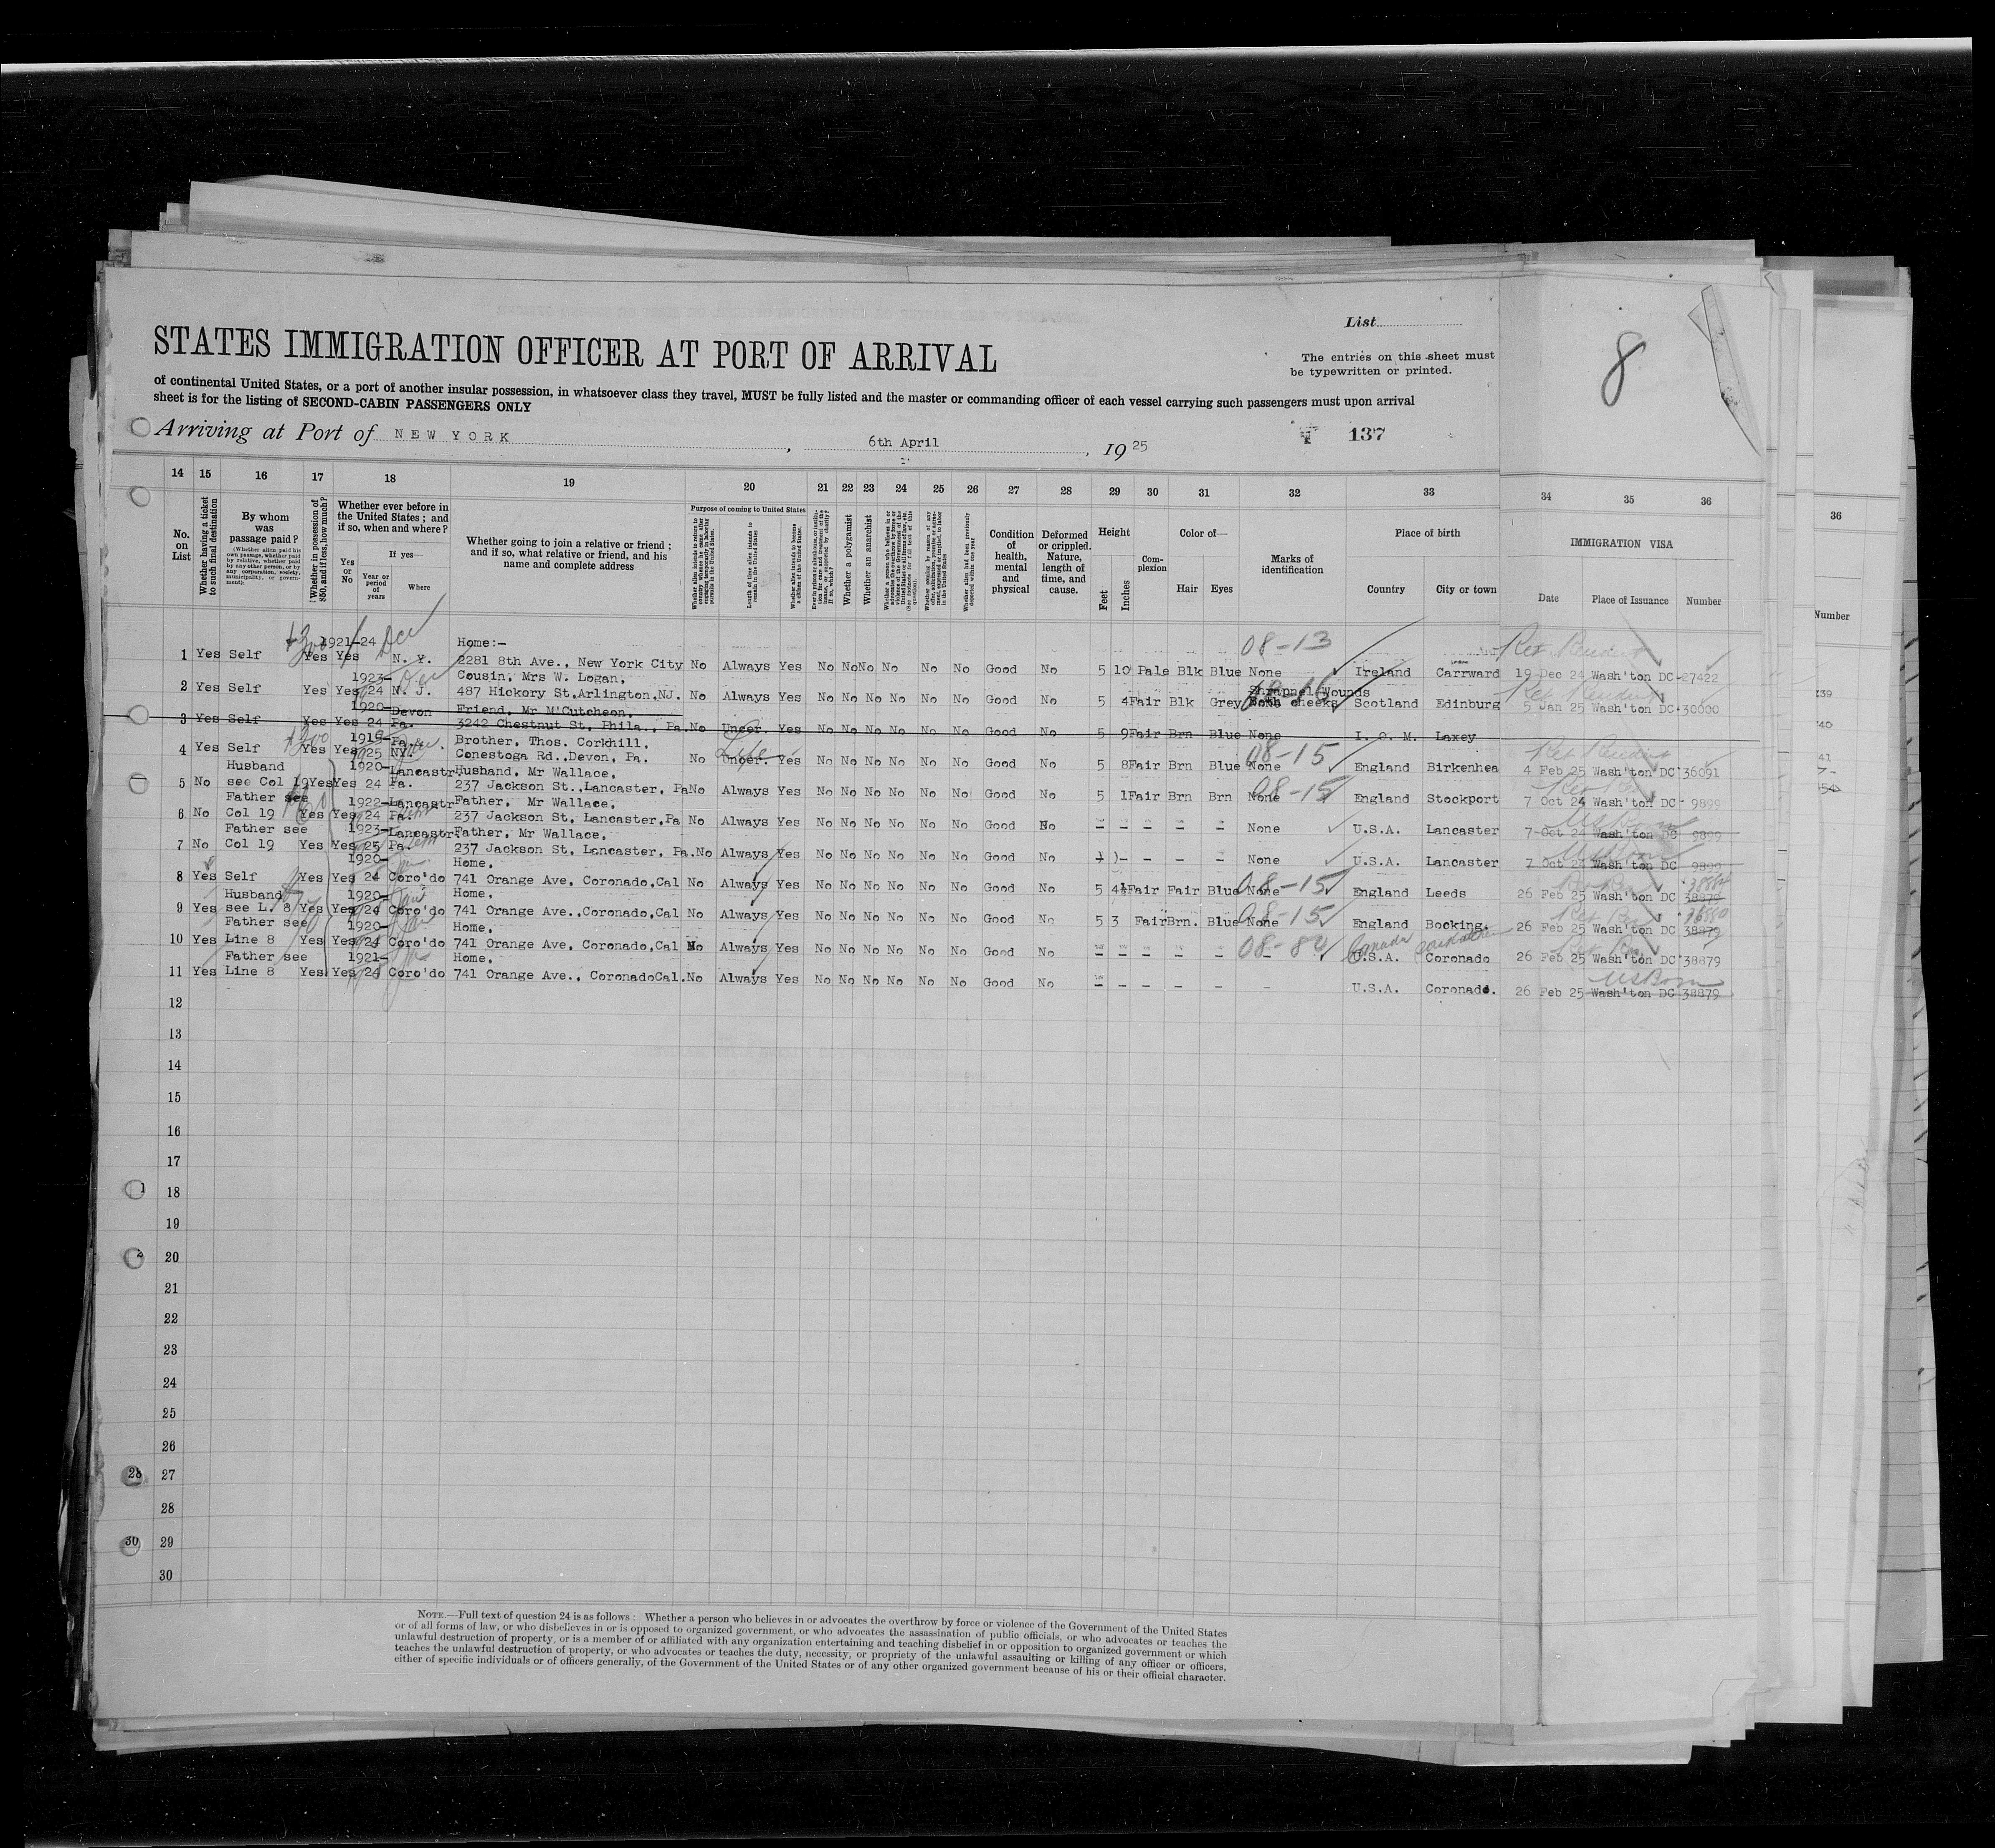 List
STATES IMMIGRATION OFFICER AT PORT OF ARRIVAL
The entries on this sheet must
be typewritten or printed.
8
of continental United States, or a port of another insular possession, in whatsoever class they travel, MUST be fully listed and the master or commanding officer of each vessel carrying such passengers must upon arrival
sheet is for the listing of SECOND-CABIN PASSENGERS ONLY
Arriving at Port of NEW YORK, 6th April, 1925
137
14 15 16 17 18 19 20 21 22 23 24 25 26 27 28 29 30 31 32 33 34 35 36
No. on List
Whether having a ticket to such final destination
By whom was passage paid?
(Whether alien paid his own passage, whether paid by relative, whether paid by any other person, or by any corporation, society, municipality, or government).
Whether in possession of $50, and if less, how much?
Whether ever before in the United States; and if so, when and where?
Yes or No
If yes—
Year or period of years
Where
Whether going to join a relative or friend; and if so, what relative or friend, and his name and complete address
Purpose of coming to United States
Length of time alien intends to remain in the United States
Whether alien intends to become a citizen of the United States
Whether a polygamist
Whether an anarchist
Condition of health, mental and physical
Deformed or crippled. Nature, length of time, and cause.
Height
Feet
Inches
Complexion
Color of—
Hair
Eyes
Marks of identification
Place of birth
Country
City or town
IMMIGRATION VISA
Date
Place of Issuance
Number
36
Number
1921-24 Home:- 08-13
1 Yes Self Yes Yes N. Y. 2281 8th Ave., New York City No Always Yes No No No No No No Good No 5 10 Pale Blk Blue None Ireland Carrward 19 Dec 24 Wash'ton DC 27422
1923- Cousin, Mrs W. Logan, Shrapnel Wounds
2 Yes Self Yes Yes 24 N. J. 487 Hickory St, Arlington, NJ. No Always Yes No No No No No No Good No 5 4 Fair Blk Grey Both cheeks Scotland Edinburg 5 Jan 25 Wash'ton DC 30000
1920- Devon Friend, Mr M'Cutcheon,
3 Yes Self Yes Yes 24 Pa. 3242 Chestnut St, Phila., Pa. No Uncer. Yes No No No No No No Good No 5 9 Fair Brn Blue None I. O. M. Laxey
Brother, Thos. Corkhill, Life 08-15
4 Yes Self Yes Yes 25 NY. Conestoga Rd., Devon, Pa. No Uncer. Yes No No No No No No Good No 5 8 Fair Brn Blue None England Birkenhea 4 Feb 25 Wash'ton DC 36091
Husband 1920- Lancastr Husband, Mr Wallace, 08-15
5 No see Col 19 Yes Yes 24 Pa. 237 Jackson St., Lancaster, Pa No Always Yes No No No No No No Good No 5 1 Fair Brn Brn None England Stockport 7 Oct 24 Wash'ton DC 9899
Father see 1922- Lancastr Father, Mr Wallace,
6 No Col 19 Yes Yes 24 Pa. 237 Jackson St, Lancaster, Pa No Always Yes No No No No No No Good No - - - - - None U.S.A. Lancaster 7 Oct 24 Wash'ton DC 9899
Father see 1923- Lancastr Father, Mr Wallace,
7 No Col 19 Yes Yes 25 Pa. 237 Jackson St, Lancaster, Pa. No Always Yes No No No No No No Good No - - - - None U.S.A. Lancaster 7 Oct 24 Wash'ton DC 9899
1920- Home, 08-15
8 Yes Self Yes Yes 24 Coro'do 741 Orange Ave, Coronado, Cal No Always Yes No No No No No No Good No 5 4½ Fair Fair Blue None England Leeds 26 Feb 25 Wash'ton DC 38879
Husband 1920- Home, 08-15
9 Yes see L. 8 Yes Yes 24 Coro'do 741 Orange Ave., Coronado, Cal No Always Yes No No No No No No Good No 5 3 Fair Brn. Blue None England Bocking. 26 Feb 25 Wash'ton DC 38879
Father see 1920- Home, Canada
10 Yes Line 8 Yes Yes 24 Coro'do 741 Orange Ave, Coronado, Cal No Always Yes No No No No No No Good No - - - - - - U.S.A. Coronado 26 Feb 25 Wash'ton DC 38879
Father see 1921- Home, US Born
11 Yes Line 8 Yes Yes 24 Coro'do 741 Orange Ave., Coronado Cal. No Always Yes No No No No No No Good No - - - - - - U.S.A. Coronado. 26 Feb 25 Wash'ton DC 38879
12
13
14
15
16
17
18
19
20
21
22
23
24
25
26
28 27
28
30 29
30
NOTE.—Full text of question 24 is as follows: Whether a person who believes in or advocates the overthrow by force or violence of the Government of the United States
or of all forms of law, or who disbelieves in or is opposed to organized government, or who advocates the assassination of public officials, or who advocates or teaches the
unlawful destruction of property, or is a member of or affiliated with any organization entertaining and teaching disbelief in or opposition to organized government or which
teaches the unlawful destruction of property, or who advocates or teaches the duty, necessity, or propriety of the unlawful assaulting or killing of any officer or officers,
either of specific individuals or of officers generally, of the Government of the United States or of any other organized government because of his or their official character.